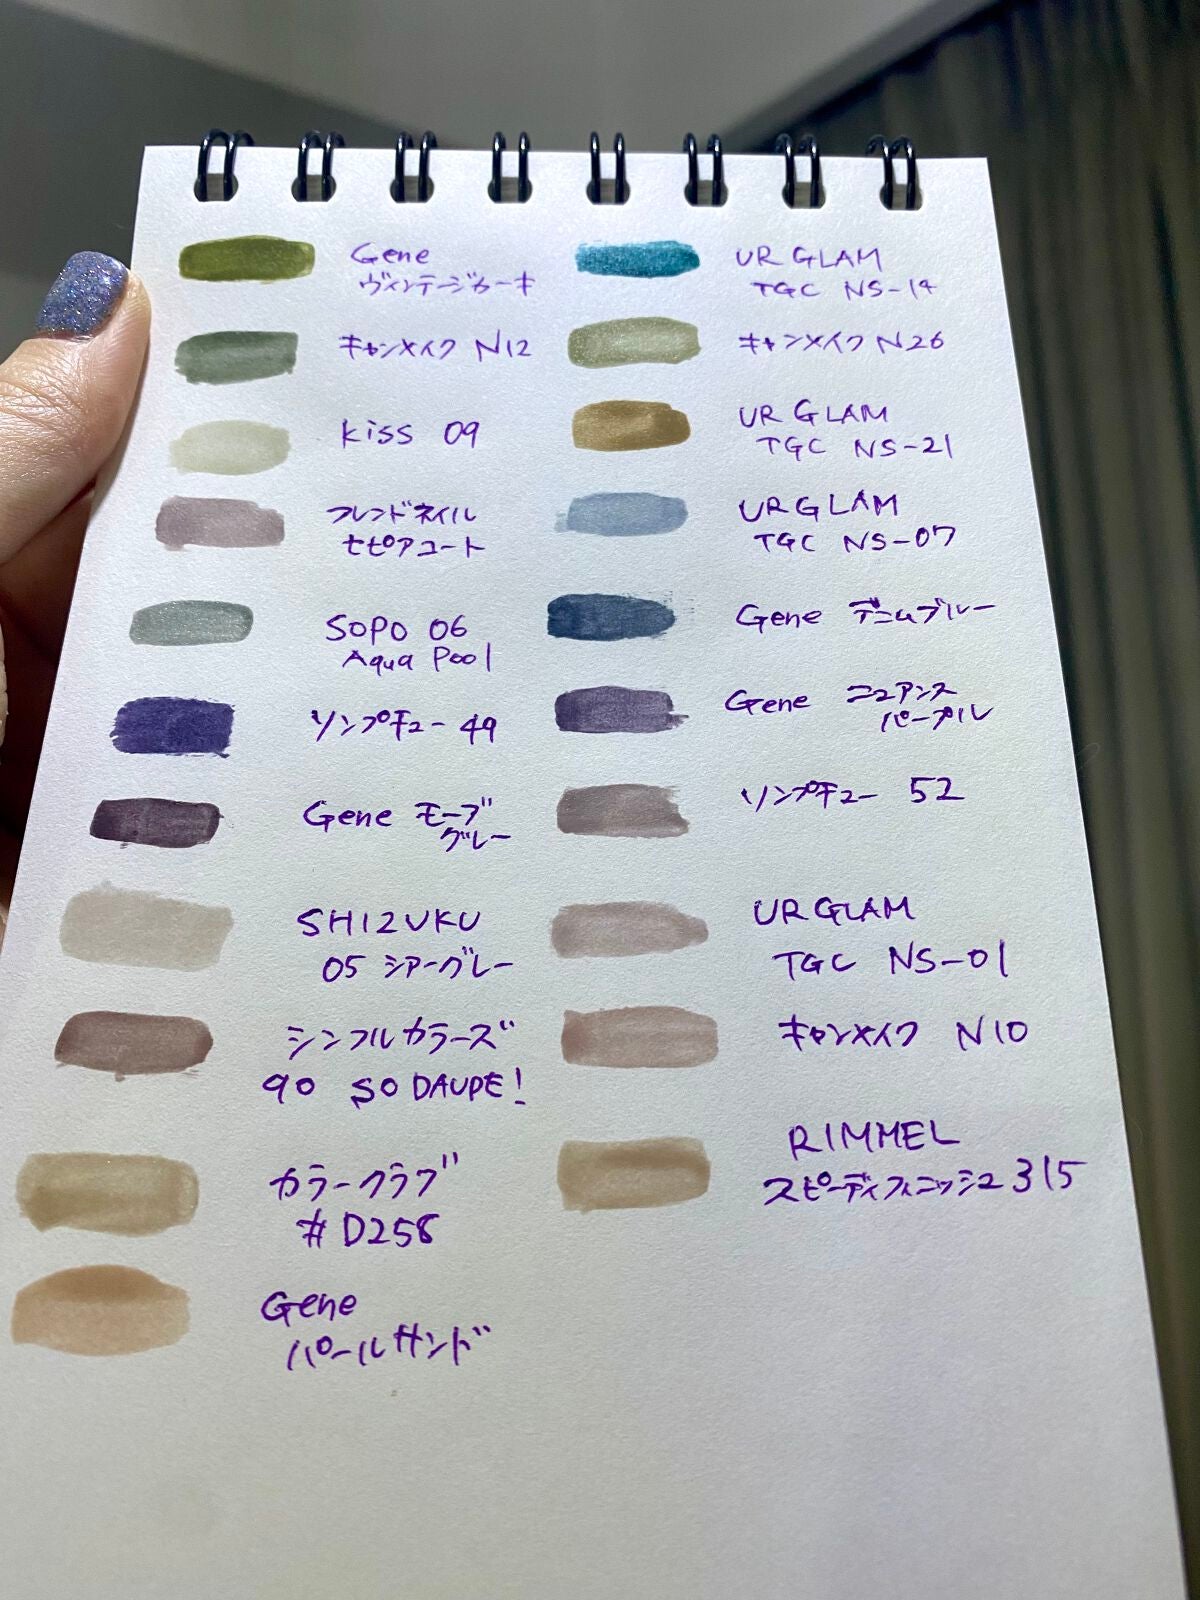 Gene
ヴィンテージカーキ
キャンメイク N12
Kiss 09
フレンドネイル
セピアコート
SOPO 06
Aqua Pool
リンプチュー 49
Gene モーブ
グレー
SHIZUKU
05 シアーグレー
シンプルカラーズ
90 SO DAUPE!
カラークラブ
# D258
Gene
パールサンド
UR GLAM
TGC NS-14
キャンメイク N26
UR GLAM
TGC NS-21
UR GLAM
TGC NS-07
Gene デニムブルー
Gene ニュアンス
パープル
リンプチュー 52
UR GLAM
TGC NS-01
キャンメイク N10
RIMMEL
スピーディフィニッシュ 315